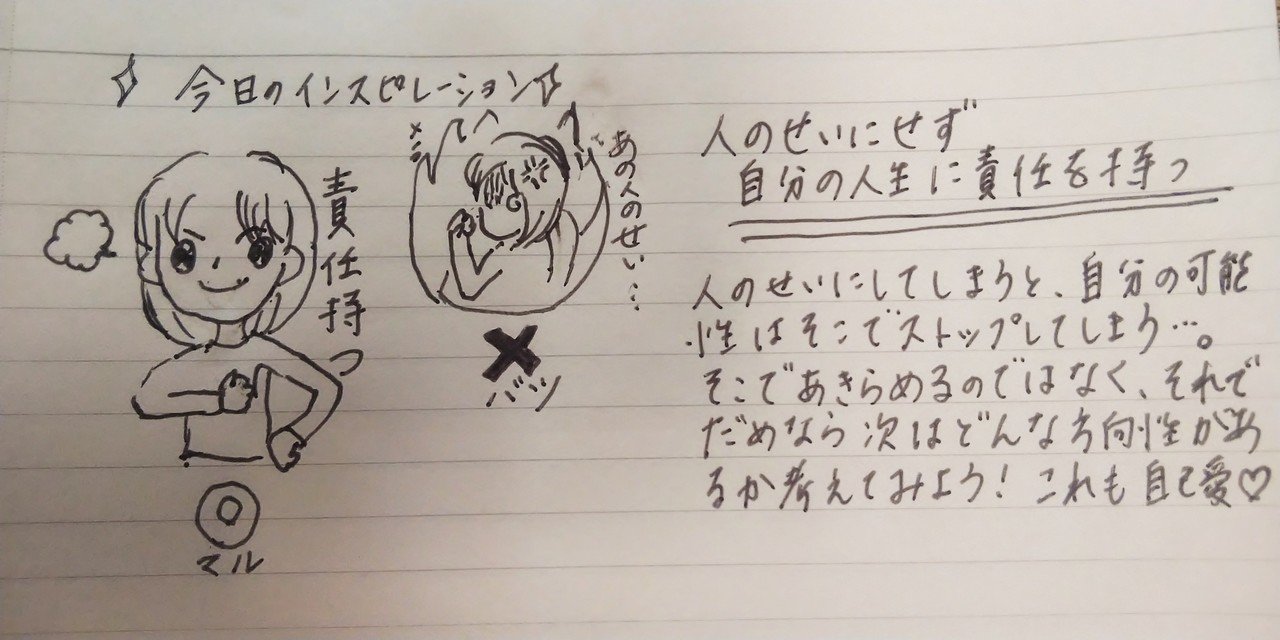 今日のインスピレーション
責任持つ
マル
あの人のせい…
バツ
人のせいにせず
自分の人生に責任を持つ
人のせいにしてしまうと、自分の可能
性はそこでストップしてしまう…。
そこであきらめるのではなく、それで
だめなら次はどんな方向性があ
るか考えてみよう！これも自己愛♡